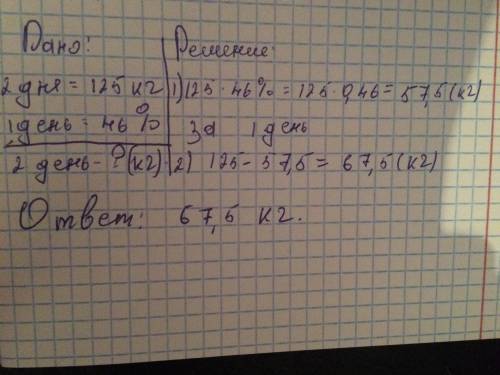 Дано:
2 дня = 125 кг
1 день = 46%
2 день - ? (кг)
Решение:
1) 125 · 46% = 125 · 0,46 = 57,5 (кг)
за 1 день
2) 125 - 57,5 = 67,5 (кг)
Ответ: 67,5 кг.